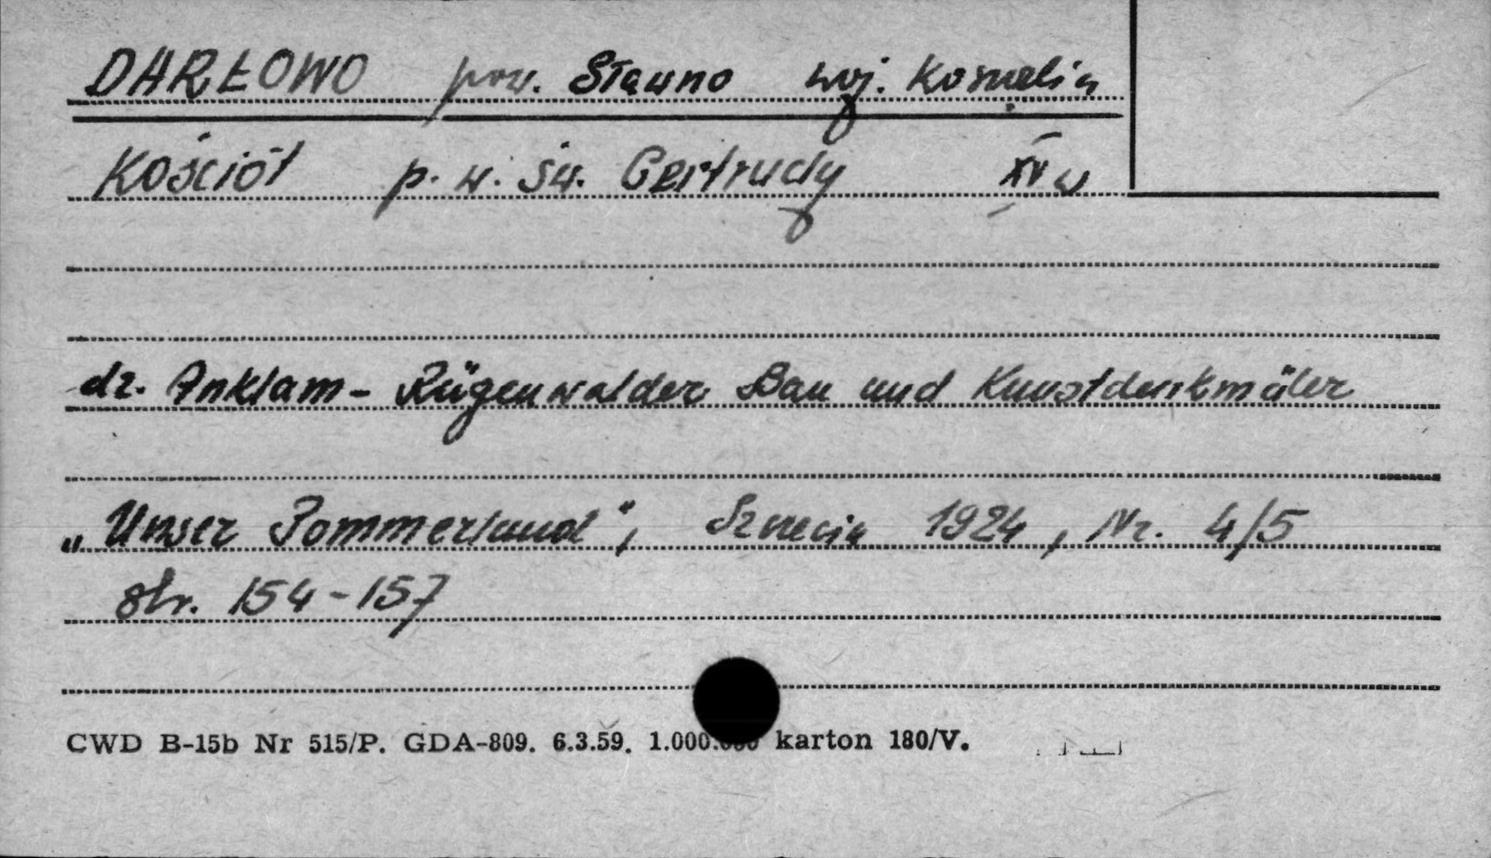 DARŁOWO pow. Sławno woj. Koszalin
Kościół p.w. św. Gertrudy XV w
dr. Anklam - Rügenwalder Bau und Kunstdenkmäler
„Unser Pommerland", Szczecin 1924, Nr. 4/5
str. 154-157
CWD B-15b Nr 515/P. GDA-809. 6.3.59. 1.000.000 karton 180/V.